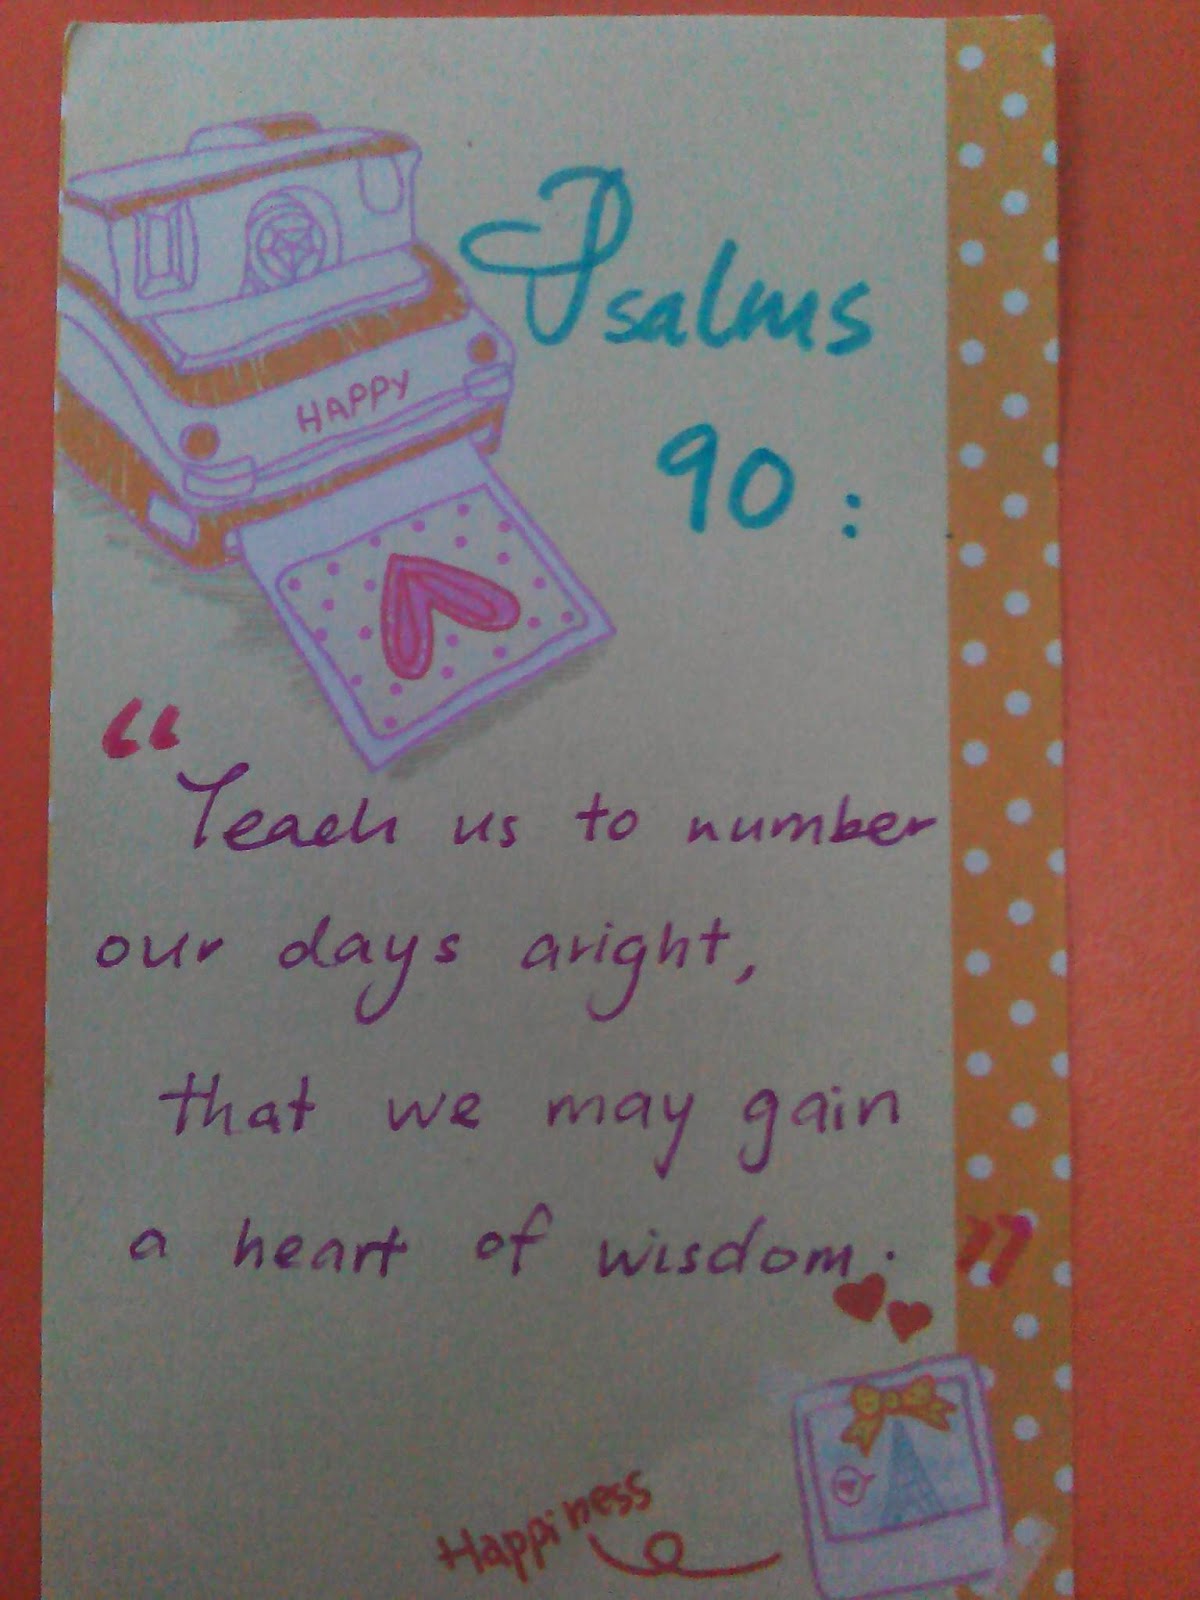 Psalms
90 :
HAPPY
“Teach us to number
our days aright,
that we may gain
a heart of wisdom. ”
Happiness